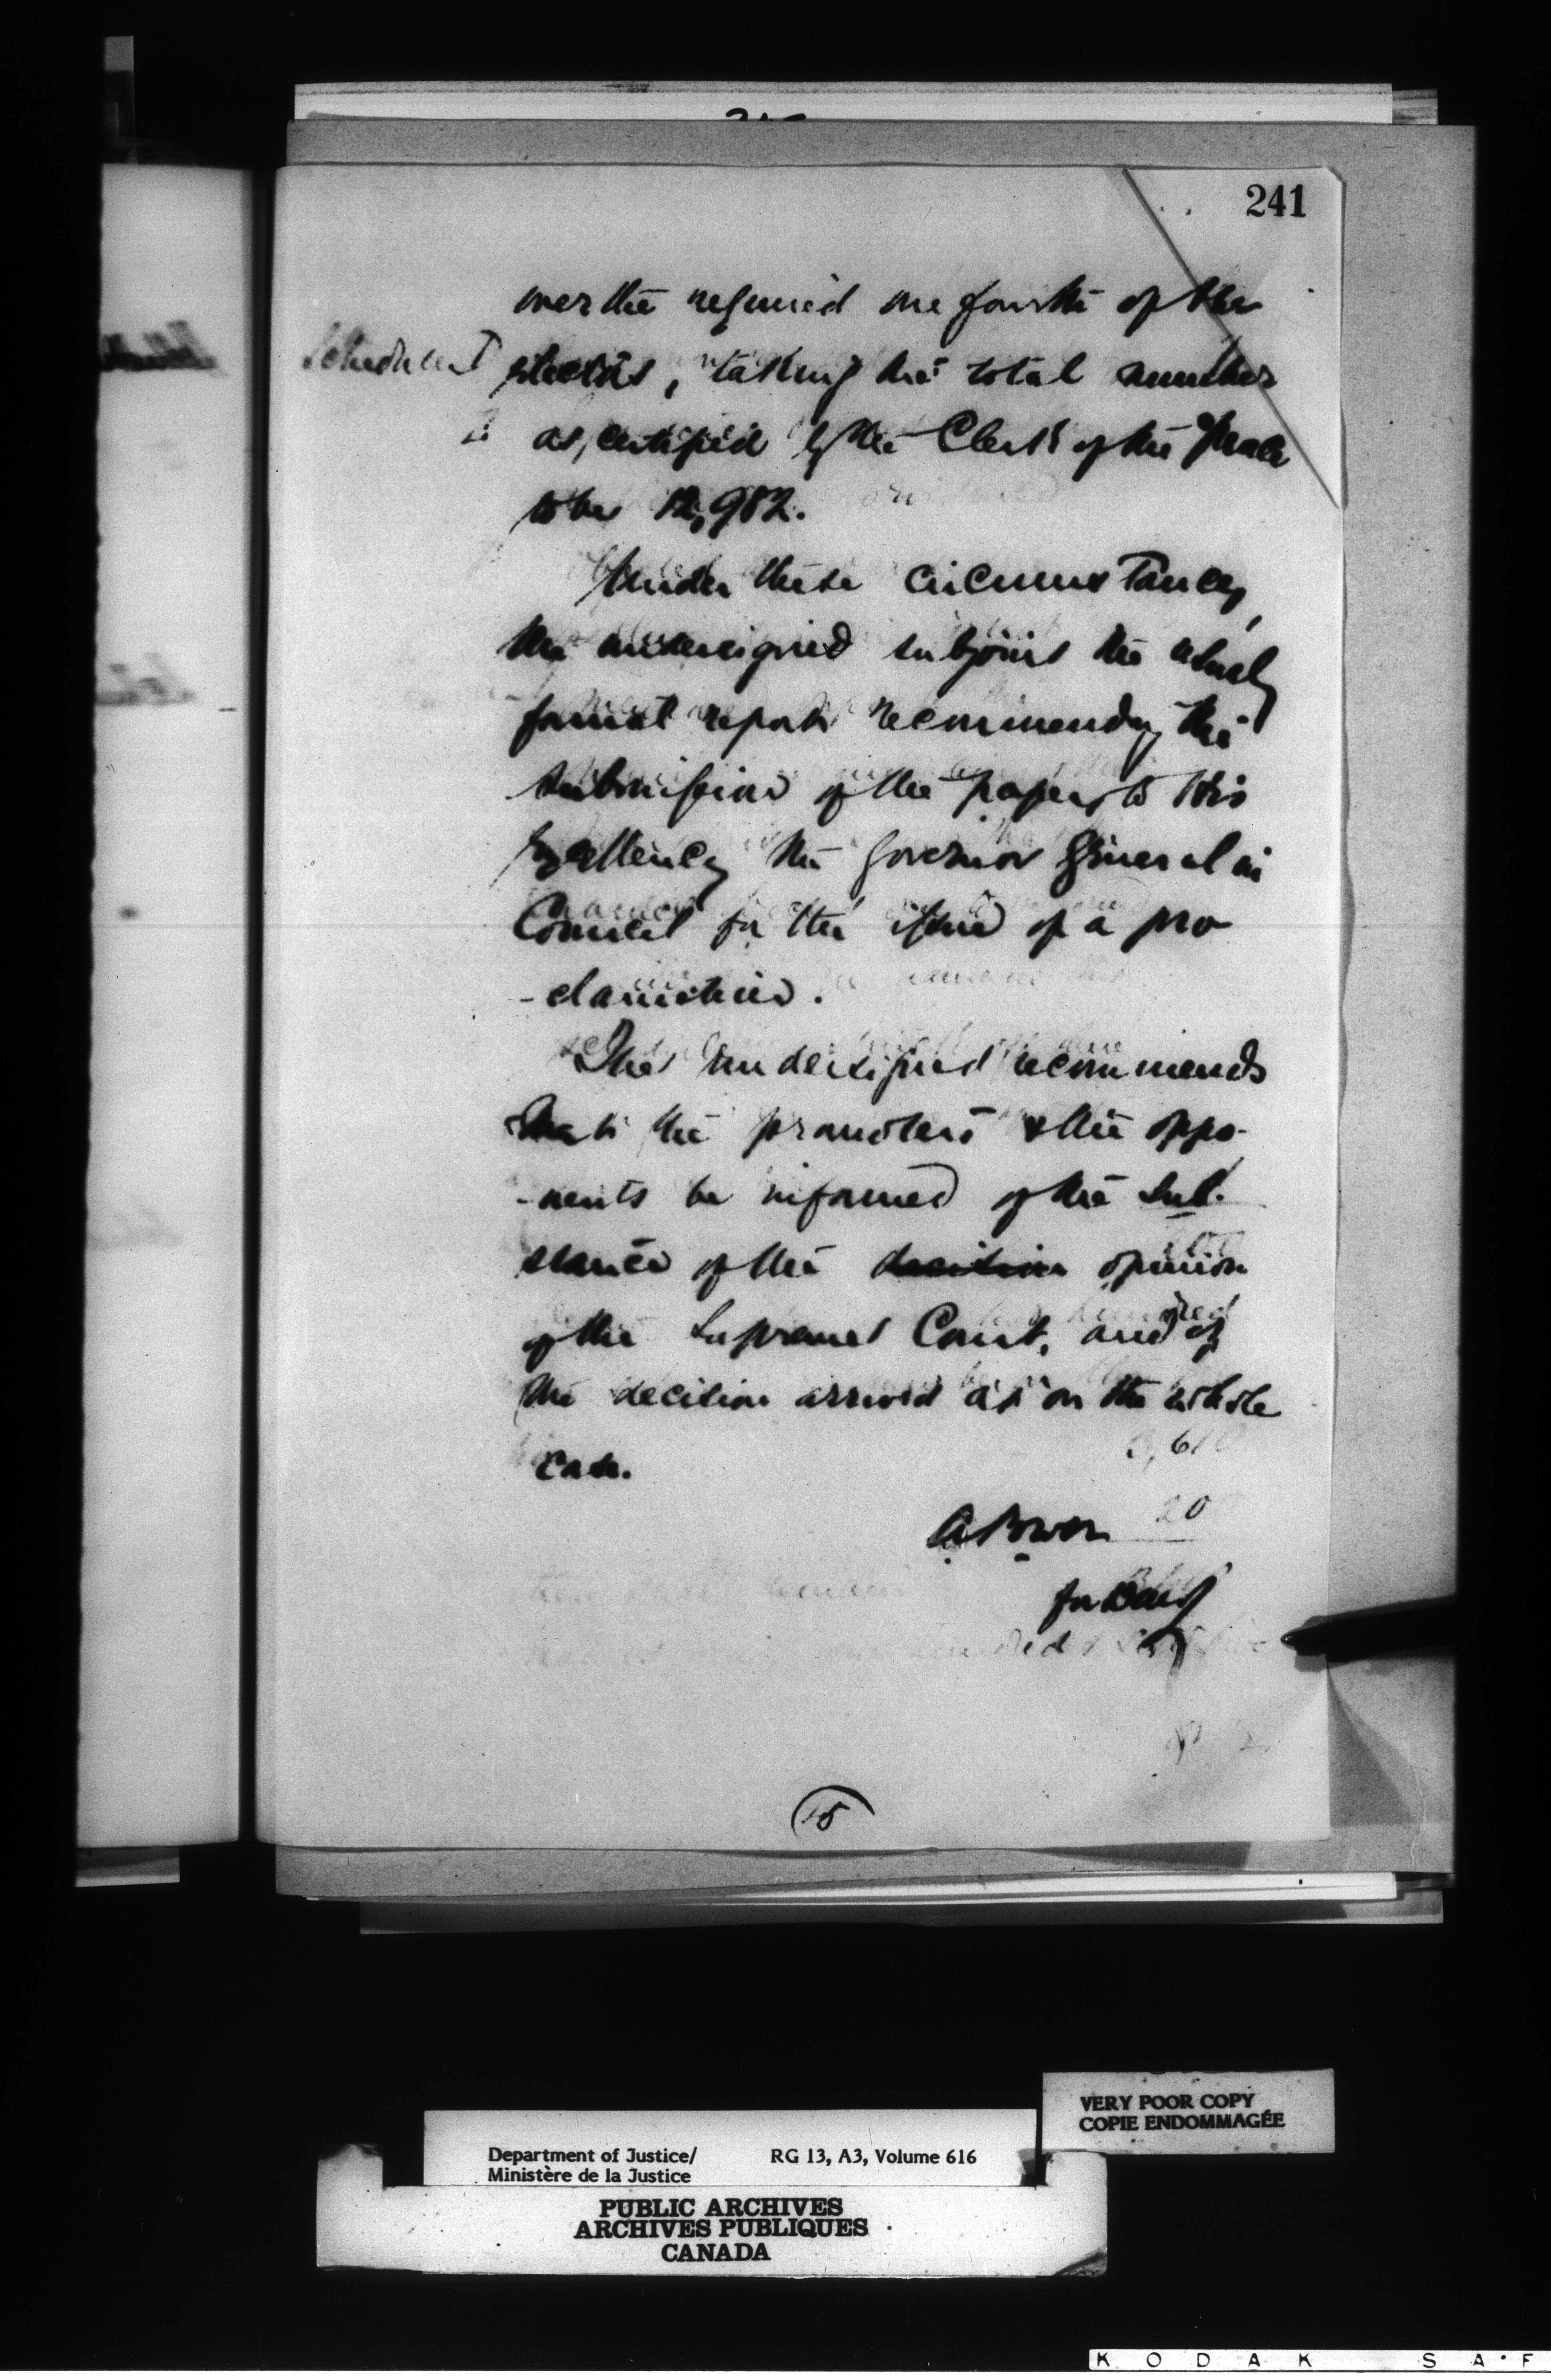 241
over the required one fourth of the
Schedule T electors, taking the total number
as certified by the Clerk of the Peace
to be 12,982.
Under these circumstances,
the undersigned subjoins the usual
formal report recommending the
submission of the papers to His
Excellency the Governor General in
Council for the issue of a pro
-clamation.
The undersigned recommends
that the promoters & the oppo-
-nents be informed of the sub-
stance of the decision opinion
of the Supreme Court, and of
the decision arrived at on the whole
case.
A Power
for DMJ
15
VERY POOR COPY
COPIE ENDOMMAGÉE
Department of Justice/ RG 13, A3, Volume 616
Ministère de la Justice
PUBLIC ARCHIVES
ARCHIVES PUBLIQUES
CANADA
KODAK SAF